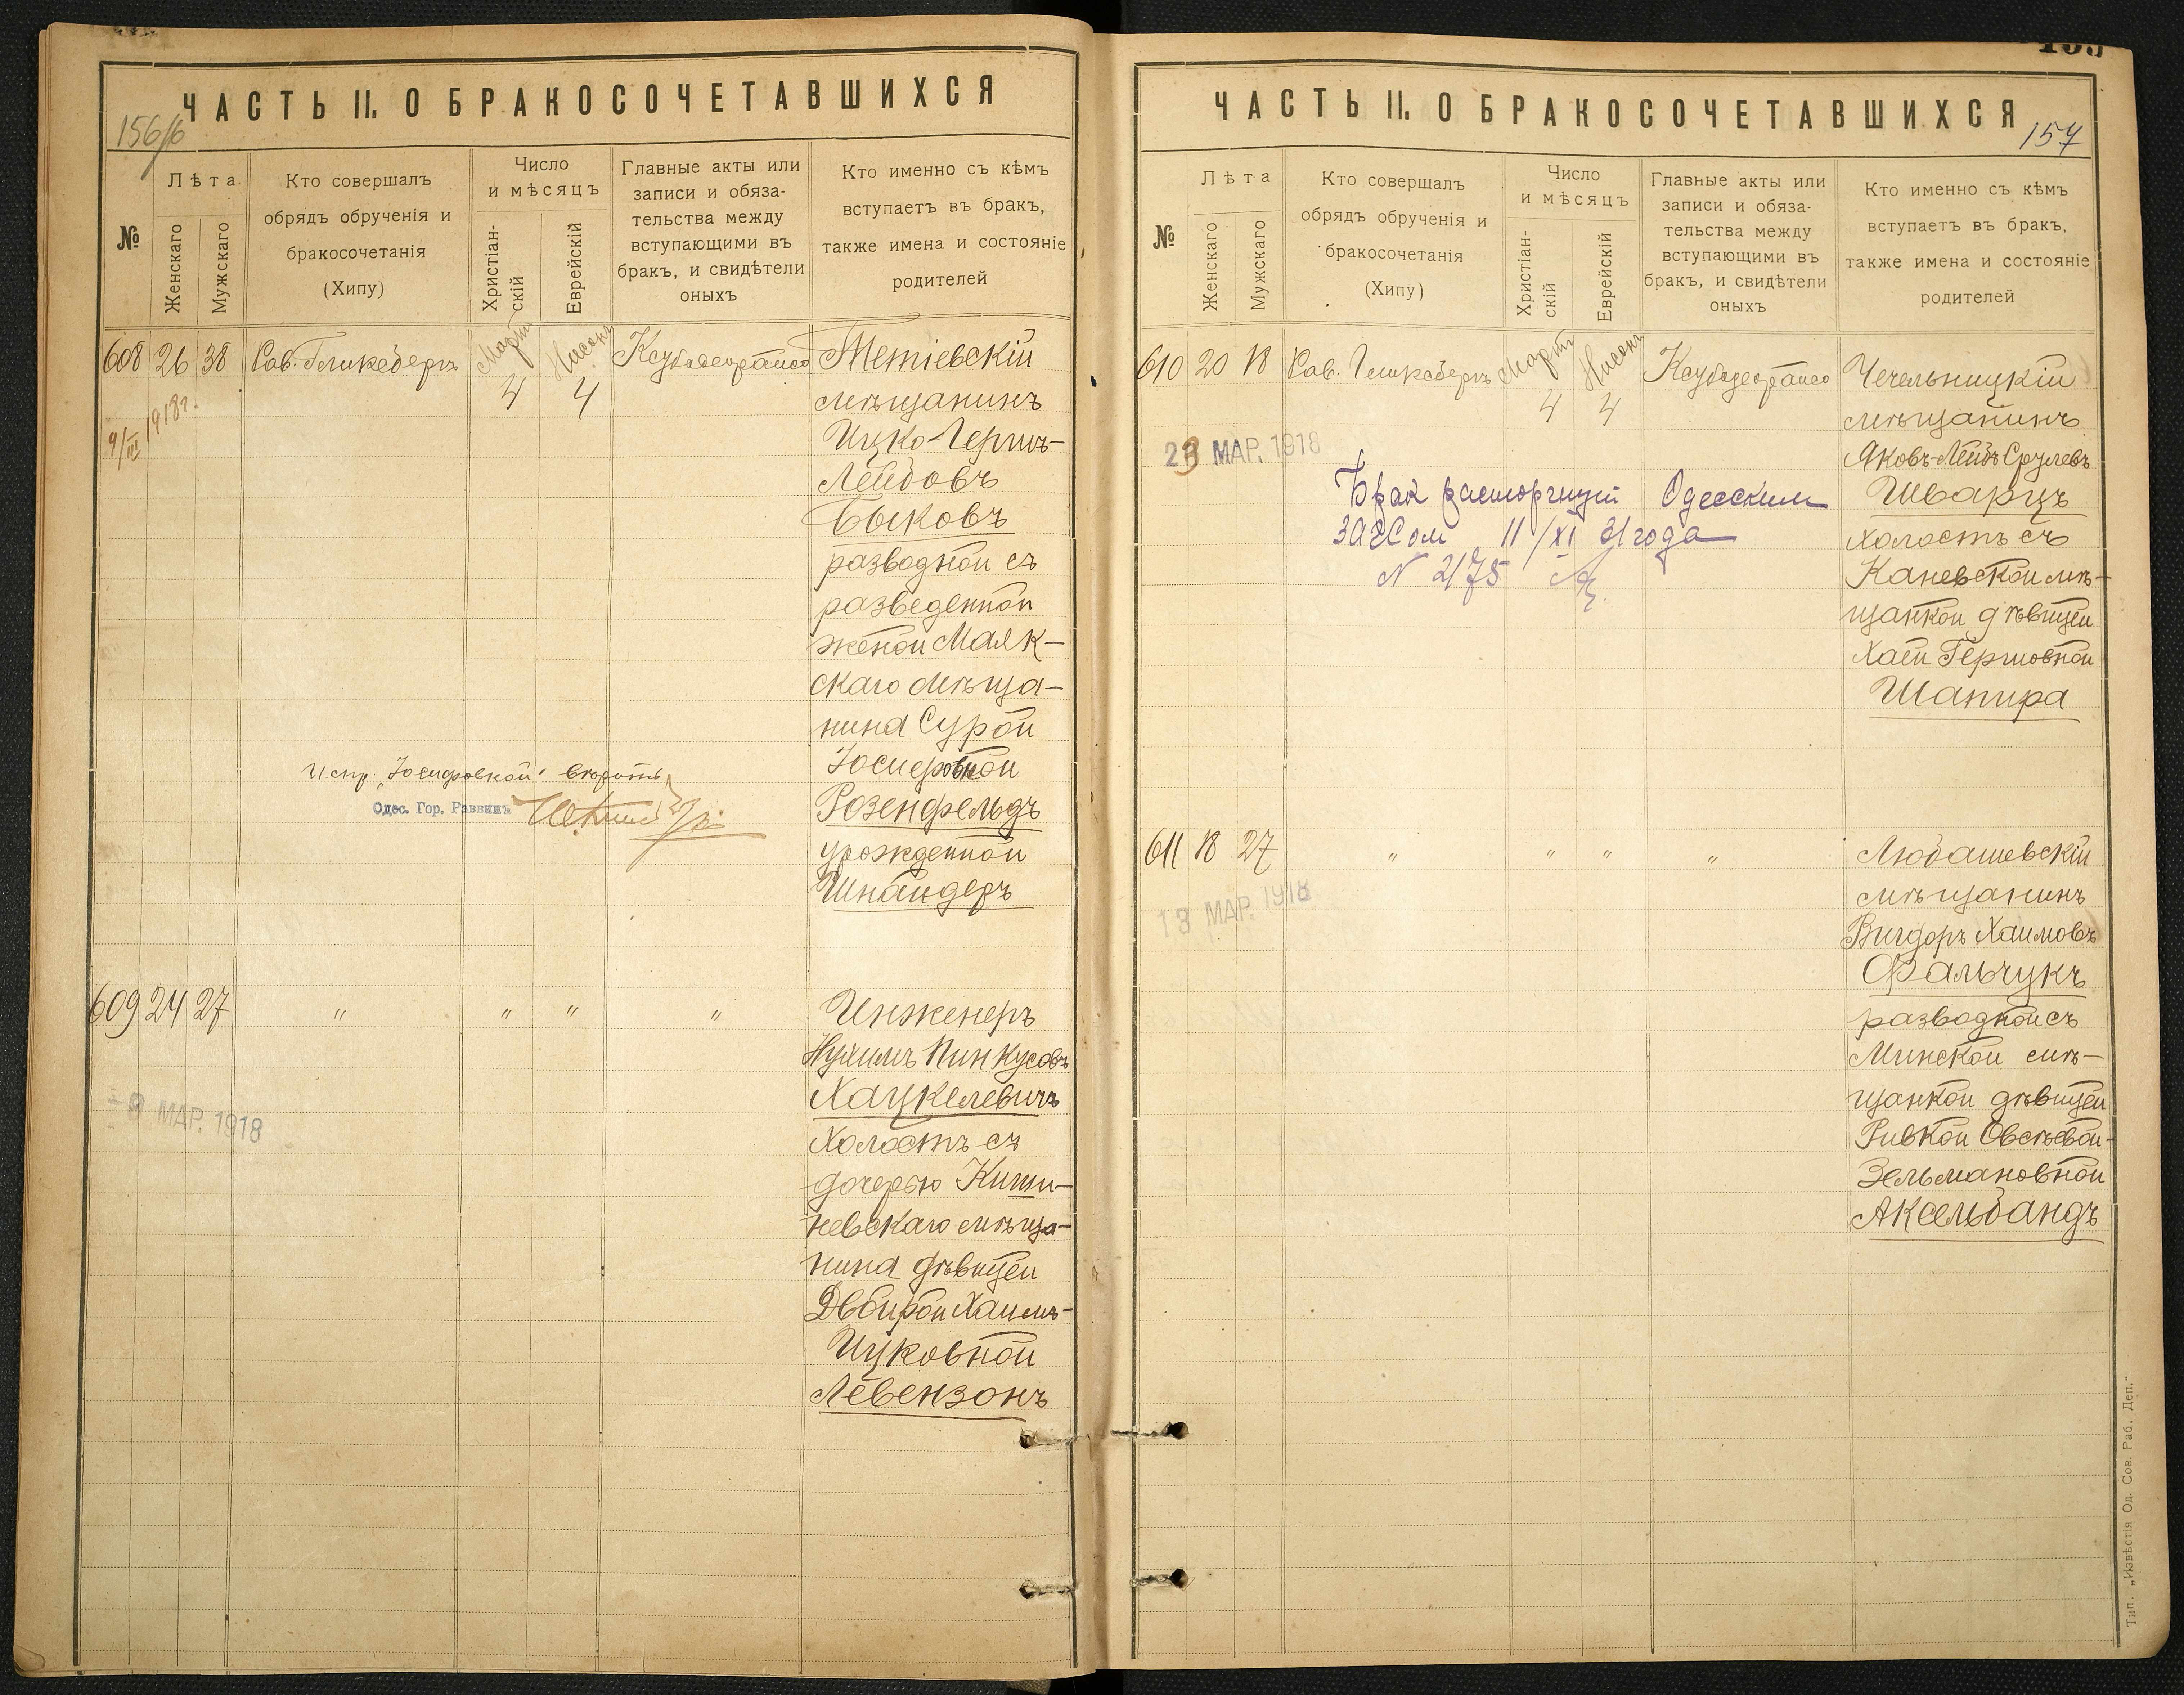 ЧАСТЬ II. О БРАКОСОЧЕТАВШИХСЯ
156/6
№
Лѣта
Женскаго
Мужскаго
Кто совершалъ
обрядъ обрученія и
бракосочетанія
(Хипу)
Число
и мѣсяцъ
Христіан-
скій
Еврейскій
Главные акты или
записи и обяза-
тельства между
вступающими въ
бракъ, и свидѣтели
оныхъ
Кто именно съ кѣмъ
вступаетъ въ бракъ,
также имена и состояніе
родителей
608 26 38 Рав. Гликсбергъ Мартъ 4 Нисонъ 4 Ксубадеорайсо
9/III 1918г.
Тетіевскій
мѣщанинъ
Ицко-Гершъ-
Лейбовъ
Быковъ
разводной съ
разведенной
женой Маяк-
скаго мѣща-
нина Сурой
Іосифовной
Розенфельдъ
урожденной
Шнайдеръ
Испр. „Іосифовной" вѣрить
Одес. Гор. Раввинъ
609 24 27 " " " "
- 9 МАР. 1918
Инженеръ
Нухимъ Пинкусовъ
Хацкелевичъ
холостъ съ
дочерью Киши-
невскаго мѣща-
нина дѣвицей
Двойрой Хаимъ-
Ицковной
Левензонъ
ЧАСТЬ II. О БРАКОСОЧЕТАВШИХСЯ
157
№
Лѣта
Женскаго
Мужскаго
Кто совершалъ
обрядъ обрученія и
бракосочетанія
(Хипу)
Число
и мѣсяцъ
Христіан-
скій
Еврейскій
Главные акты или
записи и обяза-
тельства между
вступающими въ
бракъ, и свидѣтели
оныхъ
Кто именно съ кѣмъ
вступаетъ въ бракъ,
также имена и состояніе
родителей
610 20 18 Рав. Гликсбергъ Мартъ 4 Нисонъ 4 Ксубадеорайсо
МАР. 1918
Брак расторгнут Одесским
ЗАГСом 11/XI 31 года
N 2175
Чечельницкій
мѣщанинъ
Яковъ-Лейбъ Срулевъ
Шварцъ
холостъ съ
Каневской мѣ-
щанкой дѣвицей
Хаей Гершовной
Шапира
611 18 27 " " " "
13 МАР. 1918
Любашевскій
мѣщанинъ
Вигдоръ Хаимовъ
Фальчукъ
разводной съ
Минской мѣ-
щанкой дѣвицей
Ривкой Овсѣевой-
Зельмановной
Аксельбандъ
Тип. „Извѣстія Од. Сов. Раб. Деп."